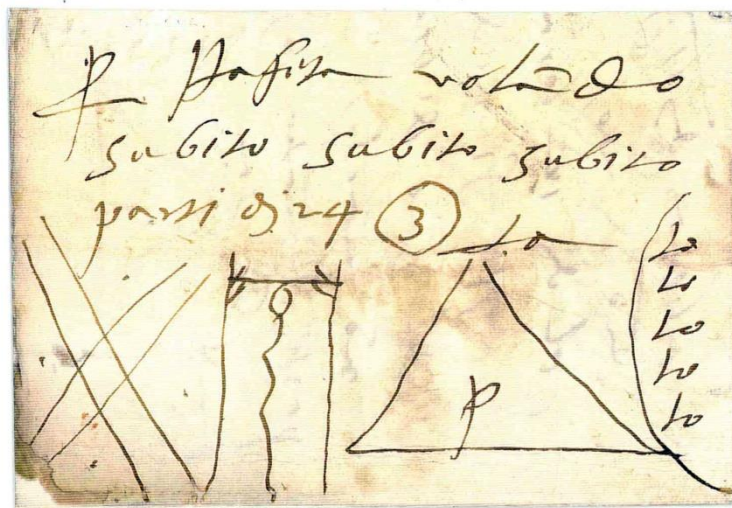 p staffetta volãdo
subito subito subito
parti di 24 3
to
to
to
to
to
p